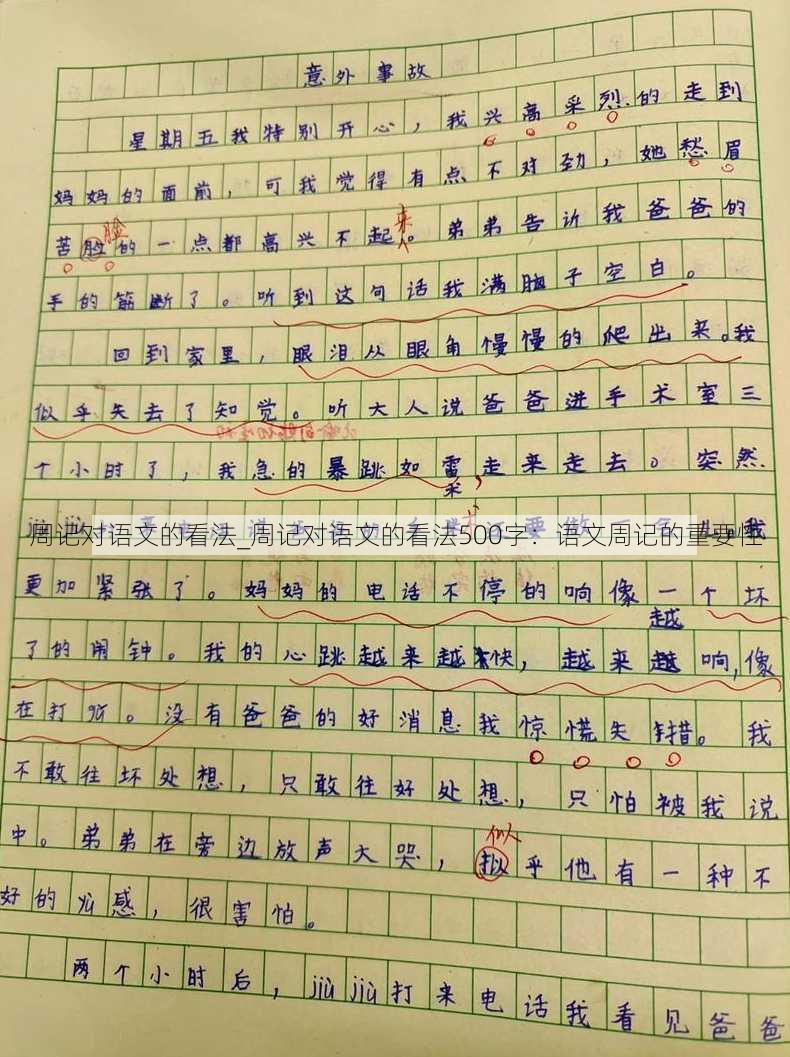 意外事故
星期五我特别开心，我兴高采烈的走到
妈妈的面前，可我觉得有点不对劲，她愁眉
苦脸的一点都高兴不起来。弟弟告诉我爸爸的
脸
手的筋断了。听到这句话我满脑子空白。
回到家里，眼泪从眼角慢慢的爬出来。我
似乎失去了知觉。听大人说爸爸进手术室三
个小时了，我急的暴跳如雷，走来走去。突然
周记对语文的看法_周记对语文的看法500字：语文周记的重要性
更加紧张了。妈妈的电话不停的响像一个坏
了的闹钟。我的心跳越来越快，越来越响，像
越
在打鼓。没有爸爸的好消息我惊慌失措。我
不敢往坏处想，只敢往好处想，只怕被我说
中。弟弟在旁边放声大哭，拟乎他有一种不
似
好的 感，很害怕。
两个小时后，jiù jiù打来电话我看见爸爸